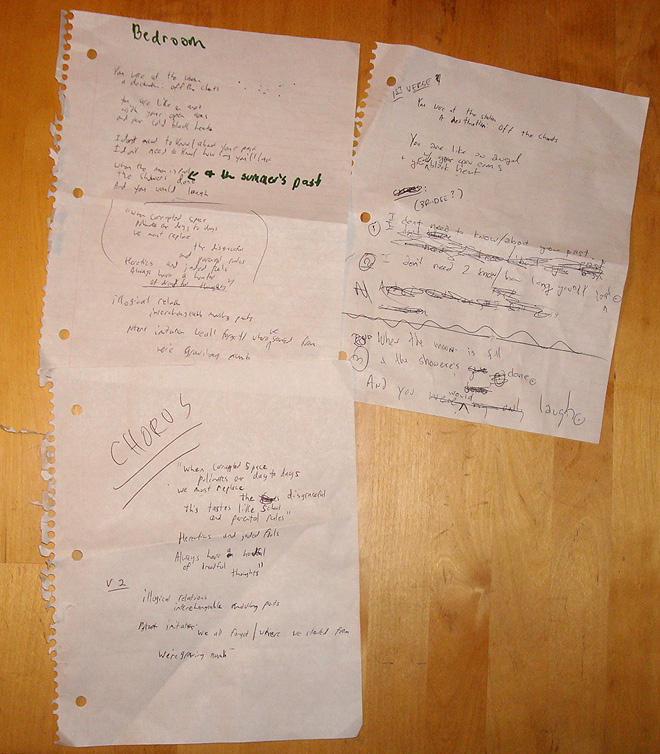 Bedroom
You were at the
a destination off the charts
You are like an
with your open arms
and your cold black heart
I don't need to know / about your past
I don't need to know how long you'll last
When the moon is full
the shower's done
& the summer's past
And you would laugh
"When corrupted space
Pollinates our days to days
We must replace
the disgraceful
and parental rules
Heretics and jaded fools
Always have a handful
of dreadful thoughts"
illogical relations
interchangeable moving parts
patent imitation we all forgot / where we started from
We're growing numb
CHORUS
"When corrupted space
pollinates our day to days
We must replace
the disgraceful
This tastes like school
and parental rules"
Heretics and jaded fools
Always have a handful
of dreadful thoughts"
V. 2
illogical relations
interchangeable moving parts
Patent imitation
we all forgot / where we started from
We're growing numb
1ST VERSE
You were at the station
A destination off the charts
You are like an angel
w/ your open arms
+ your black heart
(BRIDGE?)
① I don't need to know / about your past
② I don't need 2 know / how long you'll last
When the moon is full
③ & the shower's done
And you would laugh